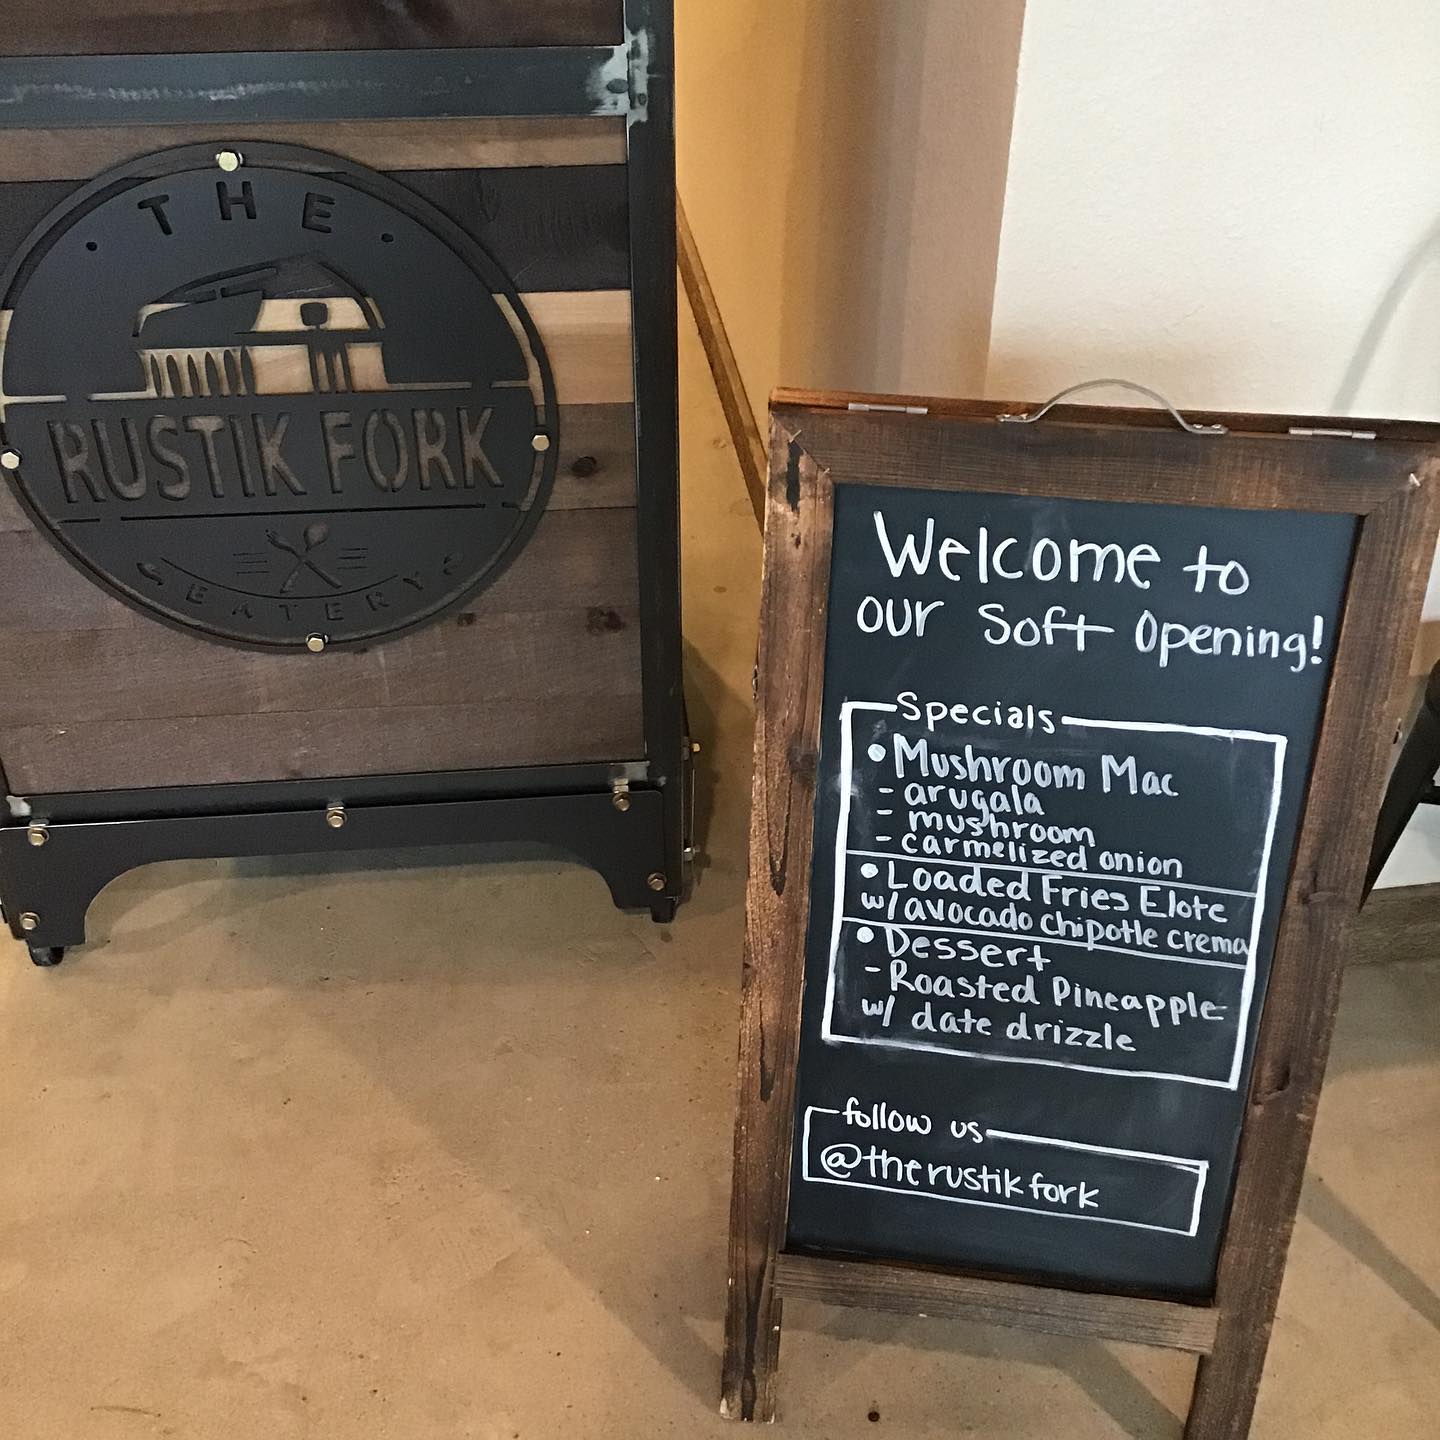 THE
RUSTIK FORK
EATERY
Welcome to
our Soft Opening!
Specials
• Mushroom Mac
- arugala
- mushroom
- carmelized onion
• Loaded Fries Elote
w/ avocado chipotle crema
• Dessert
- Roasted Pineapple
w/ date drizzle
follow us
@therustikfork